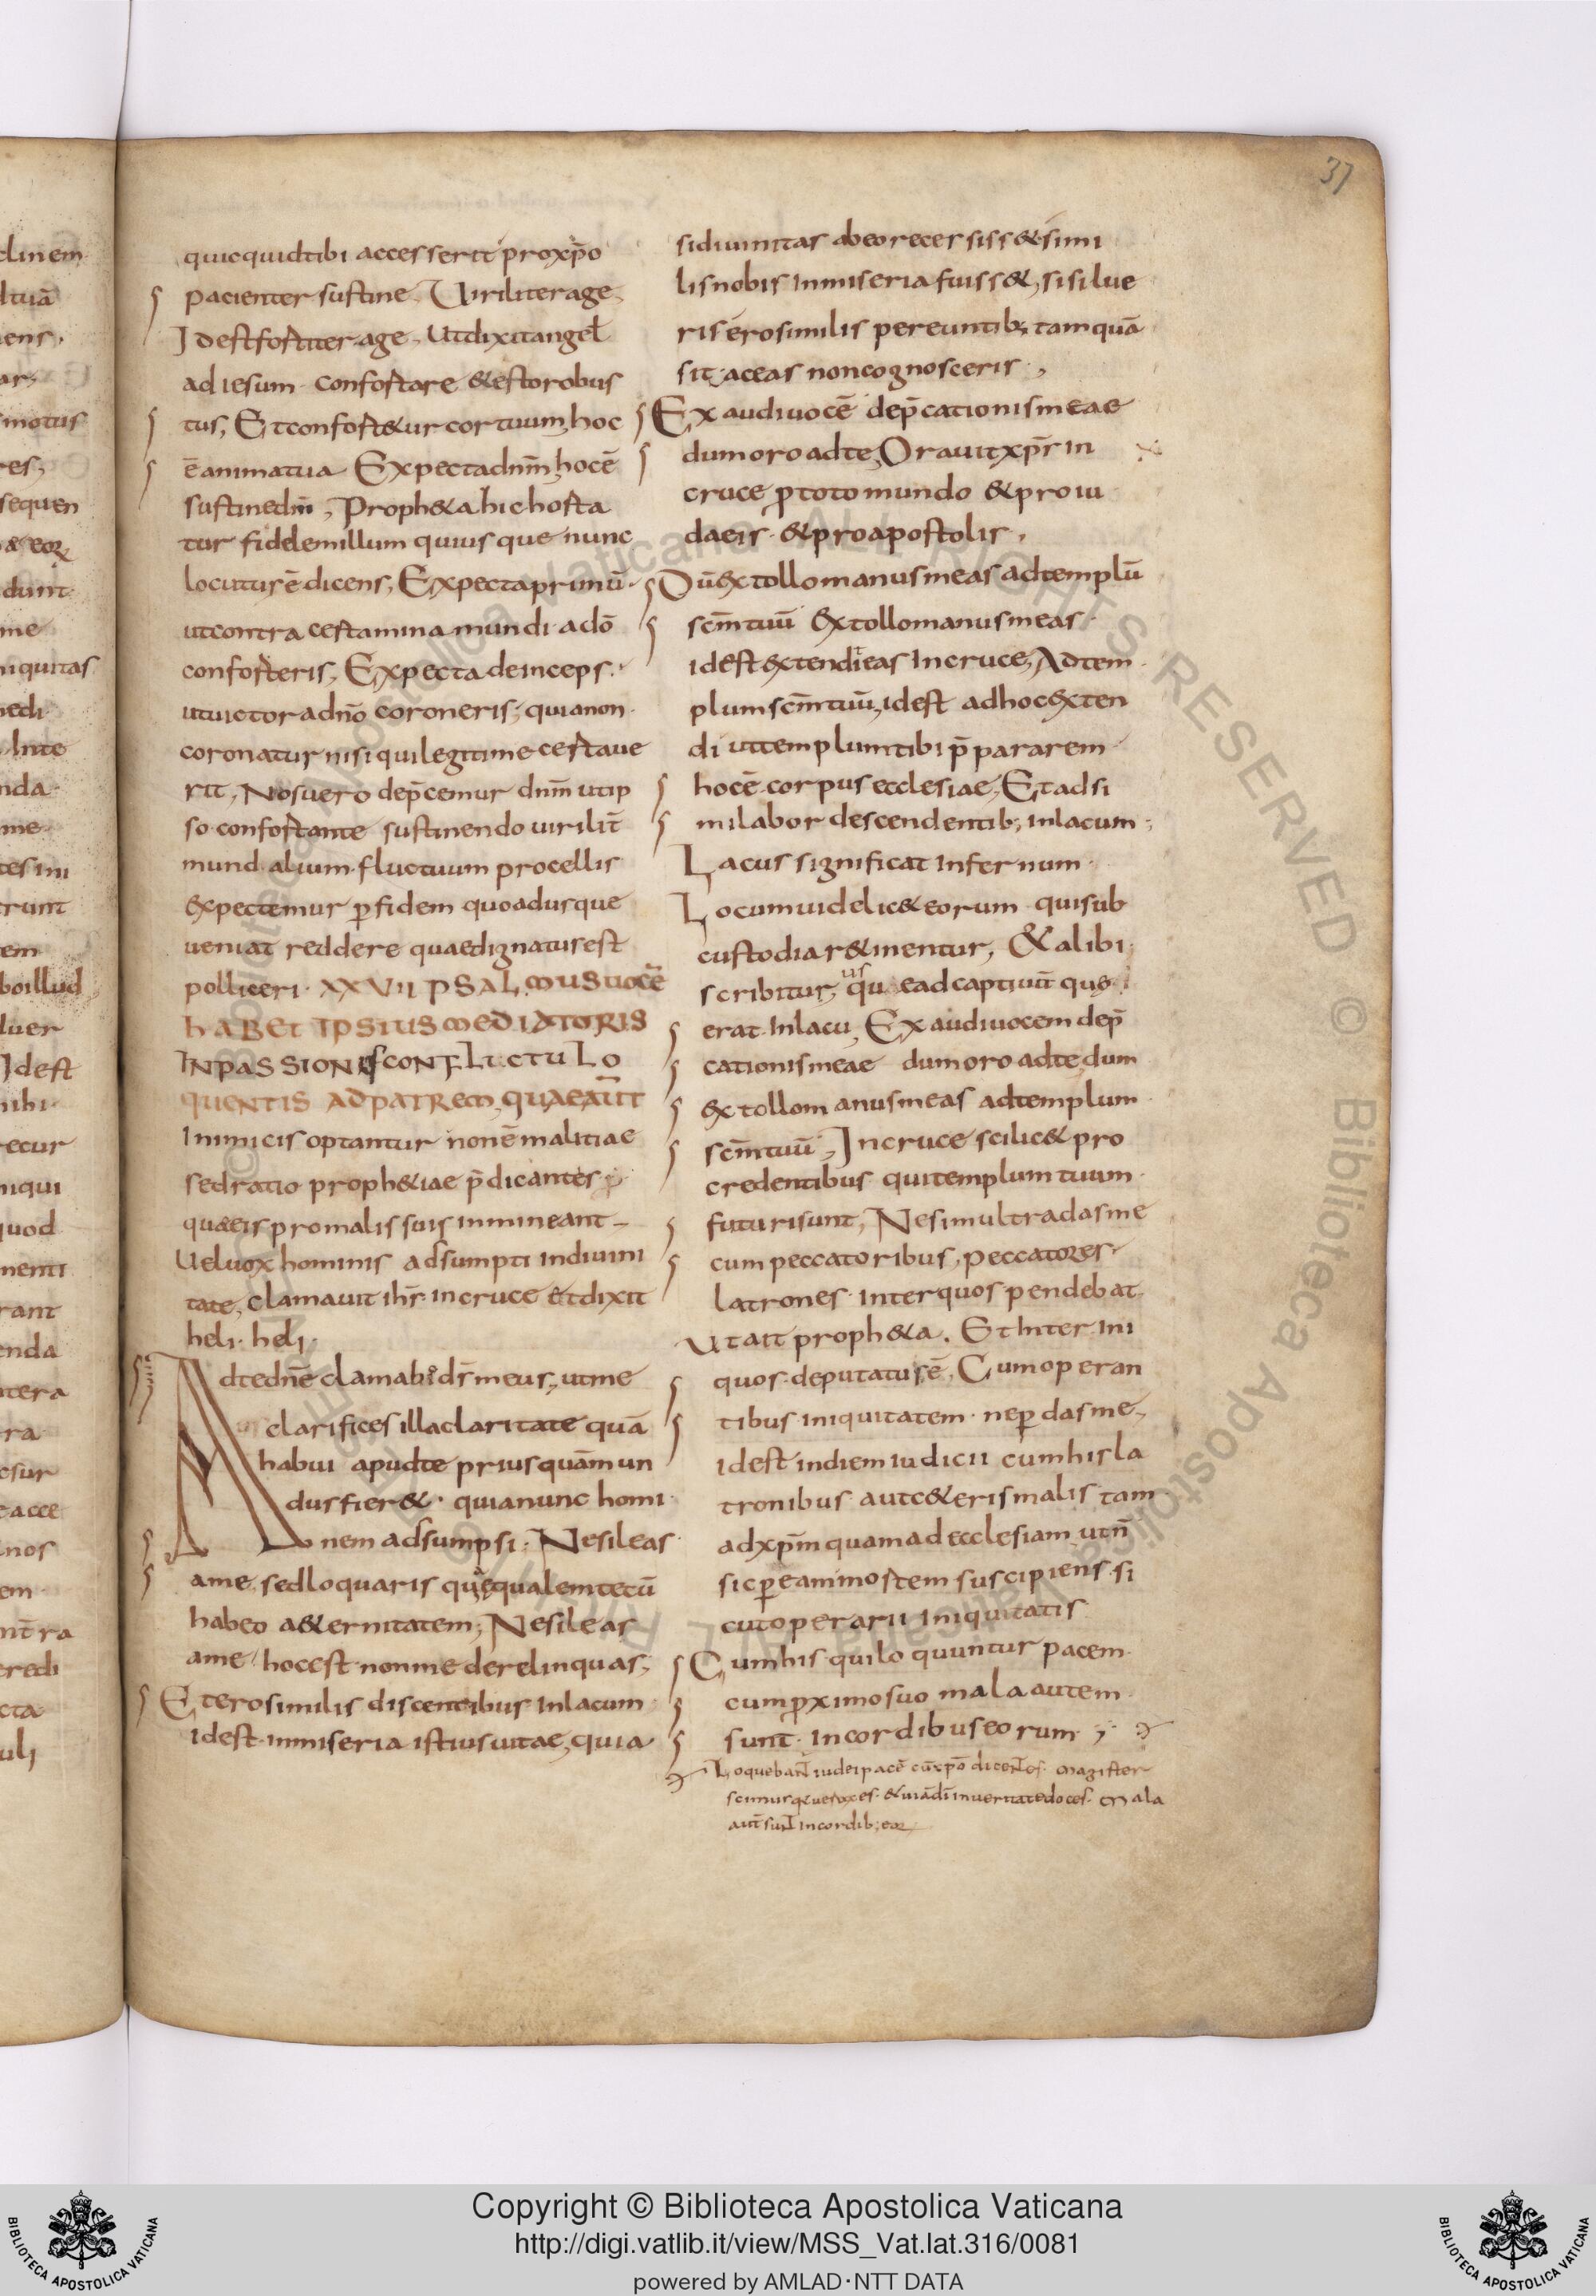 37
quicquid tibi accesserit pro xp̄o
pacienter sustine. Uiriliter age,
Id est fortiter age. Ut dixit angeł
ad iesum confortare & esto robus
tus, Et confort&ur cor tuum, hoc
ē anima tua Expecta dnm̄, hoc ē
sustine dm̄, Proph&a hic horta
tur fidelem illum quiusque nunc
locutus ē dicens, Expecta primū
ut contra certamina mundi a dō
conforteris, Expecta deinceps.
ut uictor a dnō coroneris, quia non
coronatur nisi qui legitime certaue
rit, Nos uero dep̄cemur dnm̄ ut ip
so confortante sustinendo uirilit̄
mundalium fluctuum procellis
expectemur ꝑ fidem quo adusque
ueniat reddere quae dignatus est
polliceri. XXVII PSALMUS UOCĒ
HABET IPSIUS MEDIATORIS
IN PASSIONIS CONFLICTU LO
QUENTIS AD PATREM, QUAE AUT̄
Inimicis optantur non ē malitiae
sed ratio proph&iae p̄dicantes
quae eis pro malis suis immineant
Uel uox hominis adsumpti in diuini
tate, clamauit ih̄s in cruce et dixit
heli. heli.
Ad te dnē clamabo d̄s meus, ut me
clarifices illa claritate quā
habui apud te priusquā mun
dus fier&. quia nunc homi
nem adsumpsi. Ne sileas
a me, sed loquaris quē equalem tecū
habeo a&ernitatem; Ne sileas
a me, hoc est non me derelinquas;
Et ero similis discentibus in lacum
id est in miseria istius uitae, quia
si diuinitas ab eo recessiss& simi
lis nobis in miseria fuiss&, si silue
ris ero similis pereuntib; tamquā
si taceas non cognosceris,
Exaudi uocē dep̄cationis meae
dum oro ad te, Orauit xp̄s in
cruce ꝓ toto mundo & pro iu
daeis & pro apostolis,
Dū extollo manus meas ad templū
scm̄ tuū Extollo manus meas
id est extendi eas in cruce, Ad tem
plum scm̄ tuū, id est ad hoc exten
di ut templum tibi p̄pararem
hoc ē corpus ecclesiae, Et adsi
milabor descendentib; in lacum;
Lacus significat infernum
Locum uidelic& eorum qui sub
custodia r&inentur, & alibi
scribitur, usque ad captiuū quę
erat in lacu, Exaudi uocem dep̄
cationis meae dum oro ad te, dum
extollo manus meas ad templum
scm̄ tuū, In cruce scilic& pro
credentibus qui templum tuum
futuri sunt, Ne simul tradas me
cum peccatoribus, peccatores
latrones inter quos pendebat
Ut ait proph&a. Et inter ini
quos deputatus ē, Cum operan
tibus iniquitatem ne ꝑdas me,
id est in diem iudicii cum his la
tronibus aut c&eris malis tam
ad xp̄m quam ad ecclesiam, ut n̄
sic peream mortem suscipiens si
cut operarii iniquitatis
Cum his qui loquuntur pacem
cum ꝓximo suo mala autem
sunt in cordibus eorum;
Loquebant iudei pacē cū xp̄o dicentes. magister
scimus q̄ uerax es. & uiā dī in ueritate doces. Mala
aut̄ sunt in cordib; eoꝝ
clinem
ltuā
iens.
ar,
motus
res,
sequen
& eoꝝ
dunt
me
niquitas
nda
me
runt
em
boillud
luer
Id est
mihi
recur
niqui
quod
menti
rant
enda
ntera
ra
acce
nos
em
nt̄ra
redi
cta
uli
© Biblioteca Apostolica Vaticana ALL RIGHTS RESERVED © Biblioteca Apostolica Vaticana ALL RIGHTS RESERVED
BIBLIOTECA APOSTOLICA VATICANA
Copyright © Biblioteca Apostolica Vaticana
http://digi.vatlib.it/view/MSS_Vat.lat.316/0081
powered by AMLAD·NTT DATA
BIBLIOTECA APOSTOLICA VATICANA